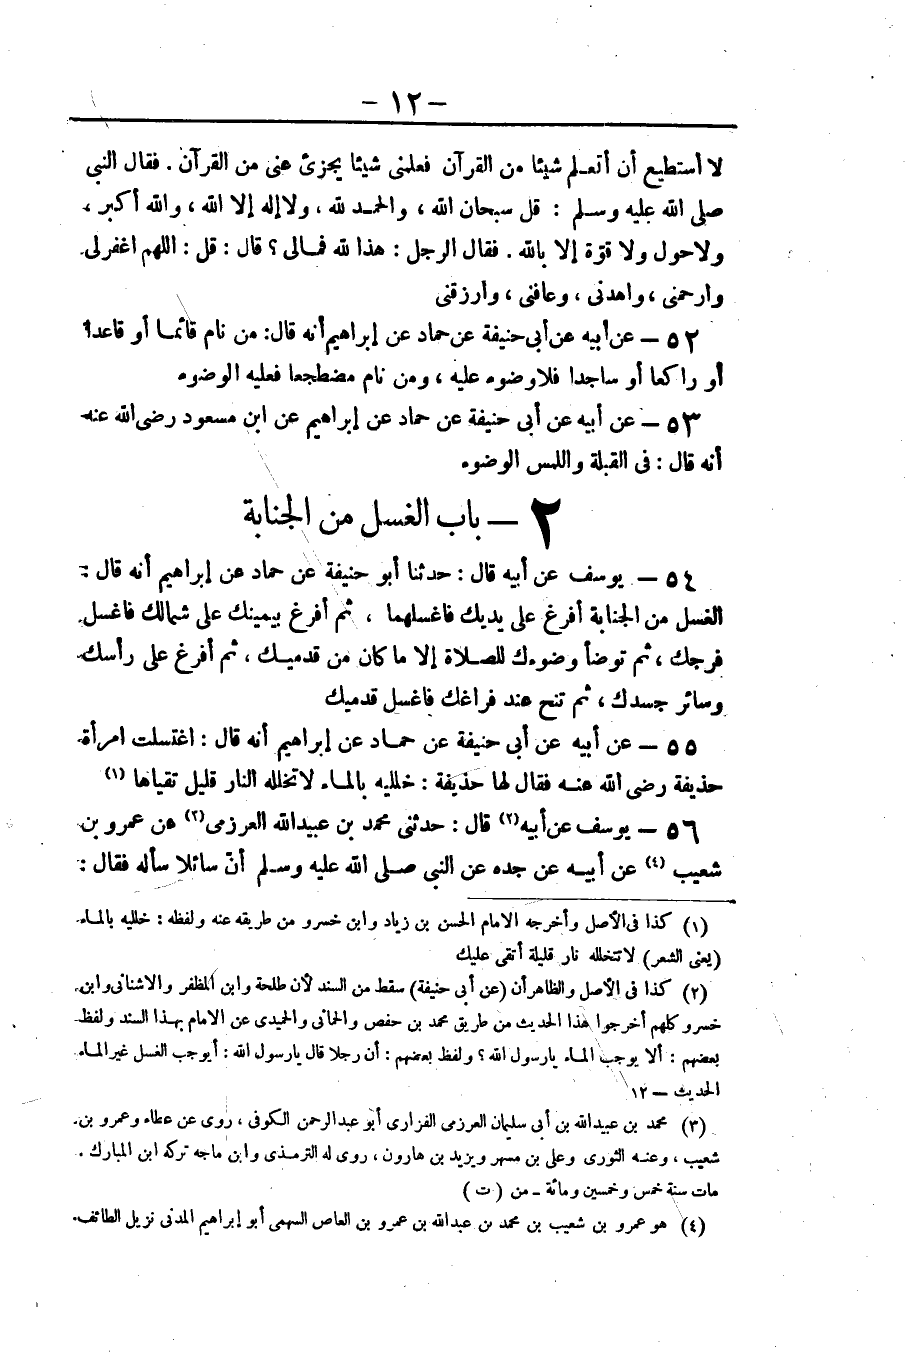 - ١٢ -
لا أستطيع أن أتعلم شيئا من القرآن فعلمنى شيئا يجزئ عنى من القرآن . فقال النبي
صلى الله عليه وسلم : قل سبحان الله ، والحمد لله ، ولاإله إلا الله ، والله أكبر ،
ولاحول ولا قوّة إلا بالله . فقال الرجل : هذا لله فمالى ؟ قال : قل : اللهم اغفرلى
وارحمنى ، واهدنى ، وعافنى ، وارزقنى
٥٢ — عن أبيه عن أبى حنيفة عن حماد عن إبراهيم أنه قال: من نام قائما أو قاعدا
أو راكعا أو ساجدا فلاوضوء عليه ، ومن نام مضطجعا فعليه الوضوء
٥٣ — عن أبيه عن أبى حنيفة عن حماد عن إبراهيم عن ابن مسعود رضى الله عنه
أنه قال : فى القبلة واللمس الوضوء
٢ — باب الغسل من الجنابة
٥٤ — يوسف عن أبيه قال : حدثنا أبو حنيفة عن حماد عن إبراهيم أنه قال :
الغسل من الجنابة أفرغ على يديك فاغسلهما ، ثم أفرغ بيمينك على شمالك فاغسل
فرجك ، ثم توضأ وضوءك للصلاة إلا ما كان من قدميك ، ثم أفرغ على رأسك
وسائر جسدك ، ثم تنح عند فراغك فاغسل قدميك
٥٥ — عن أبيه عن أبى حنيفة عن حماد عن إبراهيم أنه قال : اغتسلت امرأة
حذيفة رضى الله عنه فقال لها حذيفة : خلليه بالماء لاتخلله النار قليل تقياها (١)
٥٦ — يوسف عن أبيه (٢) قال : حدثنى محمد بن عبيدالله العرزمى (٣) عن عمرو بن
شعيب (٤) عن أبيه عن جده عن النبي صلى الله عليه وسلم أنّ سائلا سأله فقال :
(١) كذا فى الأصل وأخرجه الامام الحسن بن زياد وابن خسرو من طريقه عنه ولفظه : خلليه بالماء
(يعنى الشعر) لاتتخلله نار قليلة أتقى عليك
(٢) كذا فى الأصل والظاهر أن (عن أبى حنيفة) سقط من السند لأن طلحة وابن المظفر والاشنانى وابن
خسرو كلهم أخرجوا هذا الحديث من طريق محمد بن حفص والحمانى والحميدى عن الامام بهذا السند ولفظ
بعضهم : ألا يوجب الماء يارسول الله ؟ ولفظ بعضهم : أن رجلا قال يارسول الله : أيوجب الغسل غير الماء
الحديث — ١٢
(٣) محمد بن عبيدالله بن أبى سليمان العرزمى الفزارى أبو عبدالرحمن الكوفى ، روى عن عطاء وعمرو بن
شعيب ، وعنه الثورى وعلى بن مسهر ويزيد بن هارون ، روى له الترمذى وابن ماجه تركه ابن المبارك .
مات سنة خمس وخمسين ومائة - من ( ت )
(٤) هو عمرو بن شعيب بن محمد بن عبدالله بن عمرو بن العاص السهمى أبو إبراهيم المدنى نزيل الطائف